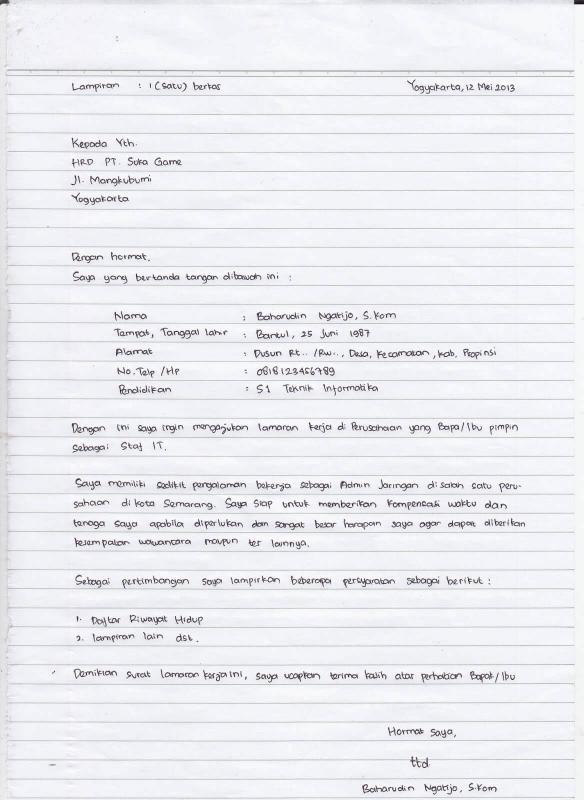 Lampiran : 1 (satu) berkas Yogyakarta, 12 Mei 2013
Kepada Yth.
HRD PT. Suka Game
Jl. Mangkubumi
Yogyakarta
Dengan hormat.
Saya yang bertanda tangan dibawah ini :
Nama : Baharudin Ngatijo, S.Kom
Tempat, Tanggal lahir : Bantul, 25 Juni 1987
Alamat : Dusun Rt.. /Rw.., Desa, Kecamatan, Kab, Propinsi
No.Telp /Hp : 0818123456789
Pendidikan : S1 Teknik Informatika
Dengan ini saya ingin mengajukan lamaran kerja di Perusahaan yang Bapa/Ibu pimpin
sebagai Staf IT.
Saya memiliki sedikit pengalaman bekerja sebagai Admin Jaringan di salah satu peru-
sahaan di kota Semarang. Saya siap untuk memberikan kompensasi waktu dan
tenaga saya apabila diperlukan dan sangat besar harapan saya agar dapat diberikan
kesempatan wawancara maupun tes lainnya.
Sebagai pertimbangan saya lampirkan beberapa persyaratan sebagai berikut :
1. Daftar Riwayat Hidup
2. lampiran lain dst.
Demikian surat lamaran kerja ini, saya ucapkan terima kasih atas perhatian Bapak/Ibu
Hormat saya,
ttd
Baharudin Ngatijo, S.Kom